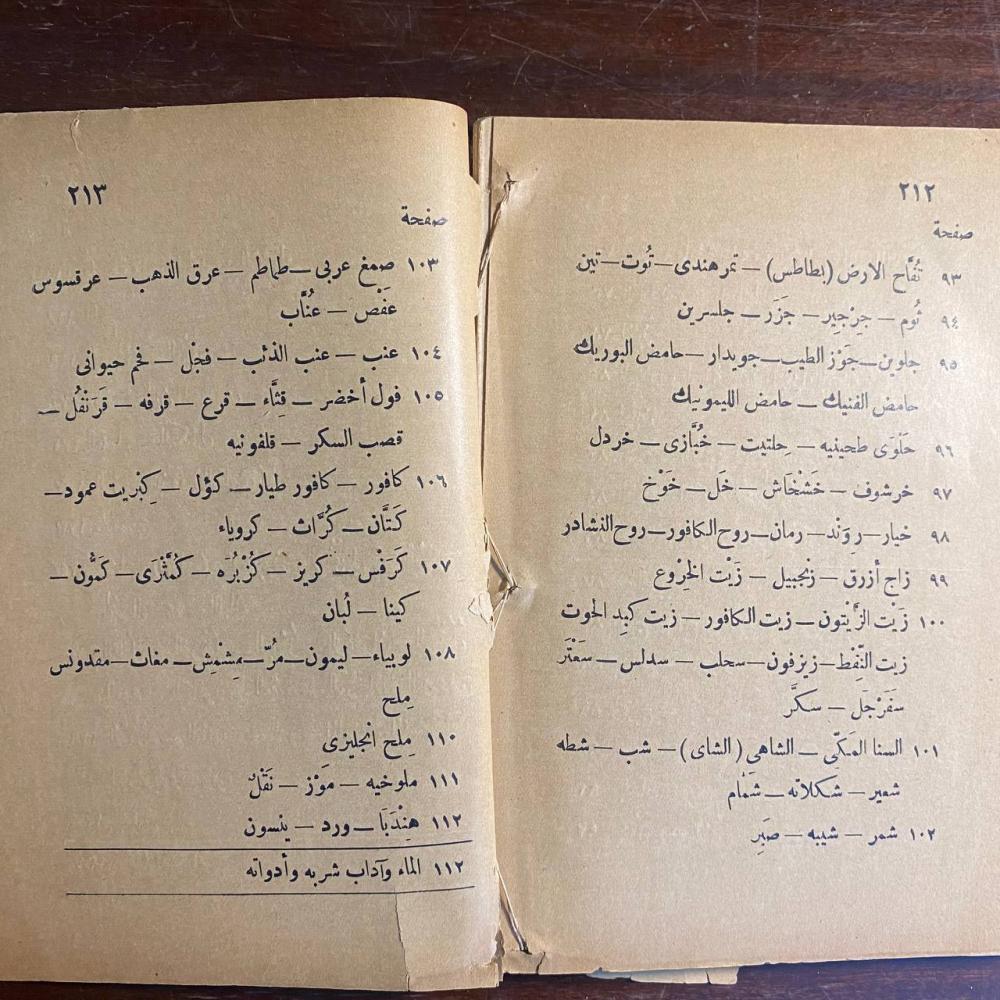 ٢١٢
صفحة
٩٣ تُفَّاح الارض (بطاطس) – تمر هندى – تُوت – تين
٩٤ ثُوم – جِرْجِير – جَزَر – جلسرين
٩٥ جلوين – جَوْز الطيب – جويدار – حامض البوريك
حامض الفنيك – حامض الليمونيك
٩٦ حَلْوَى طحينيه – حِلتيت – خُبَّازى – خردل
٩٧ خرشوف – خَشْخَاش – خَل – خَوْخ
٩٨ خيار – رِوَند – رمان – روح الكافور – روح النشادر
٩٩ زاج أزرق – زنجبيل – زَيْت الخِرْوع
١٠٠ زَيْت الزَّيْتون – زيت الكافور – زيت كبِد الحوت
زيت النِّفط – زيزفون – سحلب – سدلس – سَعْتَر
سَفَرْجَل – سكَّر
١٠١ السنا المَكِّى – الشاهى (الشاى) – شب – شطه
شعير – شكلاته – شَمَّام
١٠٢ شمر – شيبه – صَبِر
٢١٣
صفحة
١٠٣ صمغ عربى – طماطم – عرق الذهب – عرقسوس
عَفْص – عنَّاب
١٠٤ عنب – عنب الذئب – فجْل – فحم حيوانى
١٠٥ فول أخضر – قِثَّاء – قرع – قرفه – قَرَنْفُل –
قصب السكر – قلفونيه
١٠٦ كافور – كافور طيار – كؤل – كِبْريت عمود –
كَتَّان – كُرَّاث – كرويَاء
١٠٧ كَرَفْس – كريز – كُزْبُرَه – كُمَّثْرَى – كَمُّون –
كينا – لُبان
١٠٨ لوبياء – ليمون – مرّ – مِشْمِش – مغات – مقدونس
مِلح
١١٠ مِلح انجليزى
١١١ ملوخيه – مَوْز – نَقْلٌ
١١٢ هِنْدَبَا – ورد – ينسون
١١٢ الماء وآداب شربه وأدواته